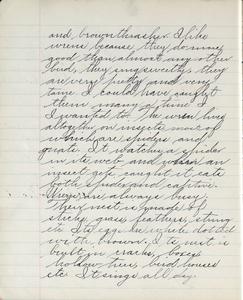 and brown thrasher. I like
wrens because they do more
good than almost any other
bird, they sing sweetly, they
are very pretty and very
tame. I could have caught
them many a time if
I wanted to. The wren lives
altogether on insects most of
which are spiders and
gnats. It watches a spider
in its web and when an
insect gets caught it eats
both spider and captive.
Wrens are always busy
their nest is made of
sticks, grass, feathers, string
etc. Its eggs are white dotted
with brown. Its nest is
built in cracks, boxes
hollow trees, bird houses
etc. It sings all day.